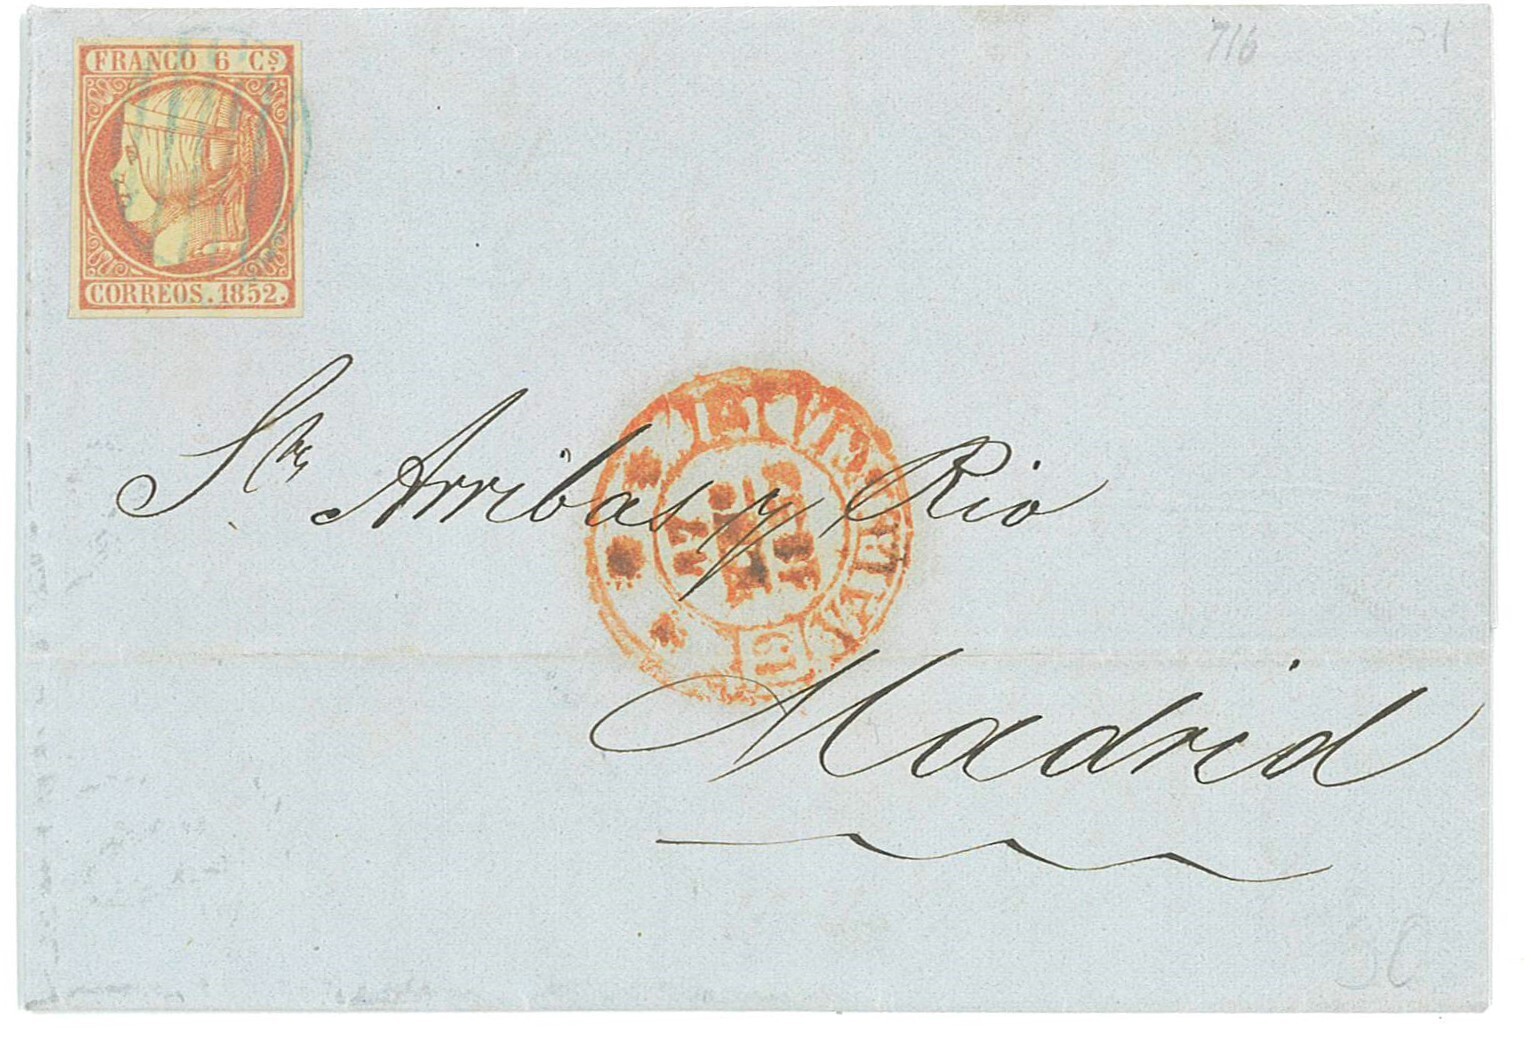 716
FRANCO 6 Cs
CORREOS. 1852.
Sres Arribas y Rio
Madrid
30